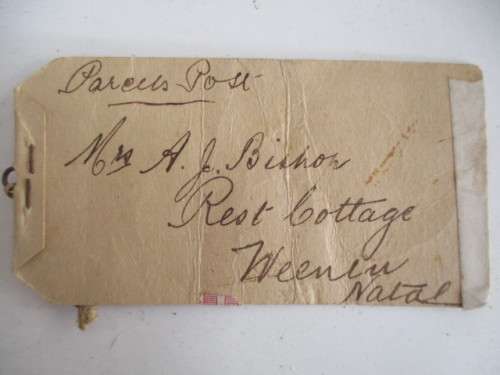 Parcels Post
Mrs A. J. Bishop
Rest Cottage
Weenen
Natal